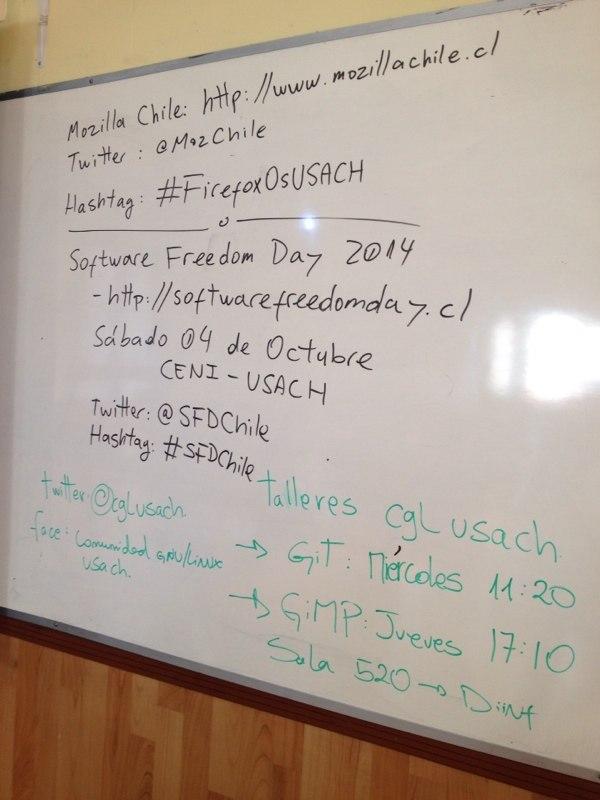 Mozilla Chile: http://www.mozillachile.cl
Twitter: @MozChile
Hashtag: #FirefoxOsUSACH
Software Freedom Day 2014
- http://softwarefreedomday.cl
Sábado 04 de Octubre
CENI - USACH
Twitter: @SFDChile
Hashtag: #SFDChile
twitter: @cglusach.
face: Comunidad GNU/Linux
usach.
talleres cgL usach.
→ GiT: Miércoles 11:20
→ GiMP: Jueves 17:10
Sala 520 → Diinf